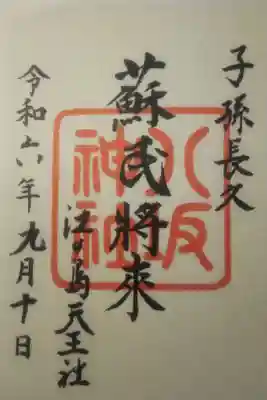 子孫長久
蘇民將來
八坂
神社
江の島天王社
令和六年九月十日